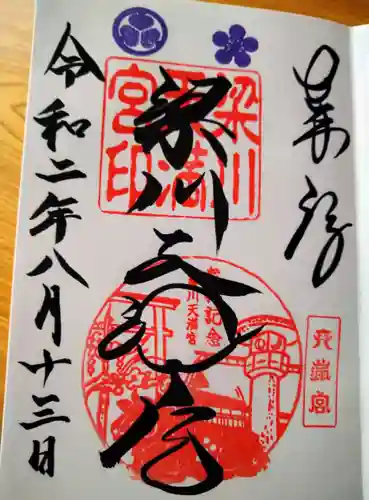 奉拝
梁川天満宮
令和二年八月十三日
梁川
天満
宮印
参拝記念
梁川天満宮
天満宮